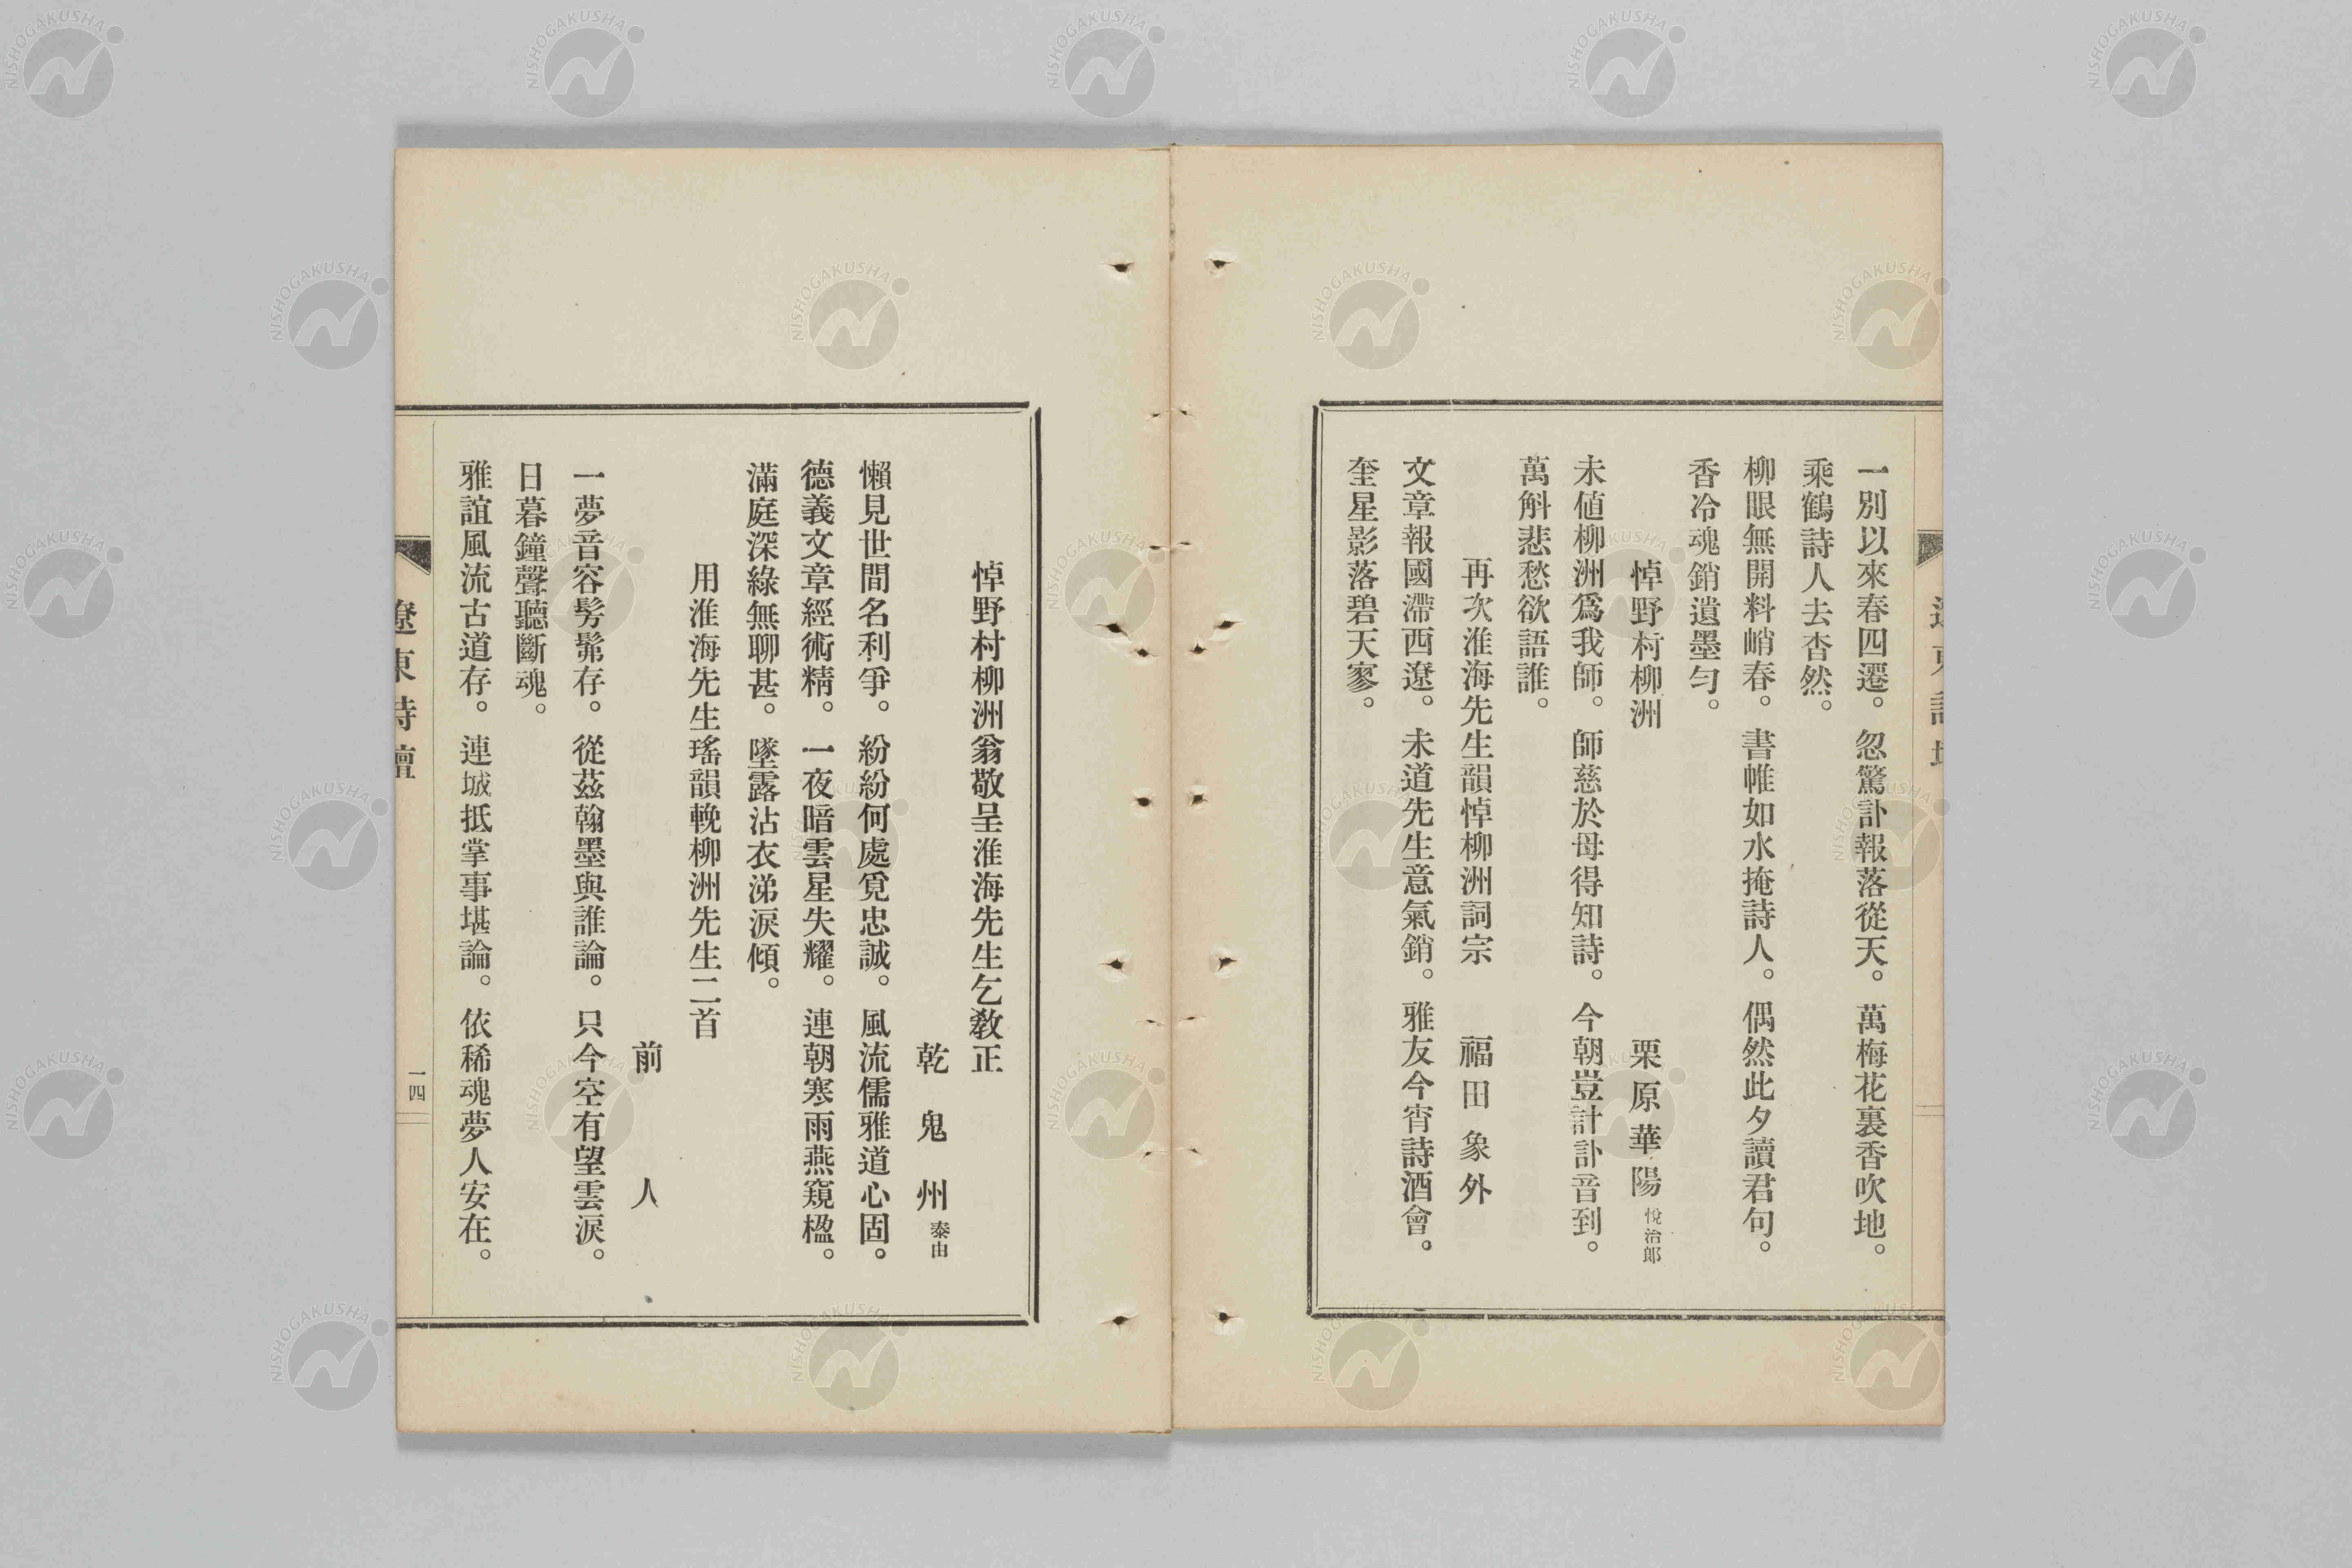 一別以來春四遷。忽驚訃報落從天。萬梅花裏香吹地。
乘鶴詩人去杳然。
柳眼無開料峭春。書帷如水掩詩人。偶然此夕讀君句。
香冷魂銷遺墨勻。
悼野村柳洲
栗原華陽 悅治郎
未値柳洲爲我師。師慈於母得知詩。今朝豈計訃音到。
萬斛悲愁欲語誰。
再次淮海先生韻悼柳洲詞宗
福田象外
文章報國滯西遼。未道先生意氣銷。雅友今宵詩酒會。
奎星影落碧天寥。
悼野村柳洲翁敬呈淮海先生乞敎正
乾鬼州 泰由
懶見世間名利爭。紛紛何處覓忠誠。風流儒雅道心固。
德義文章經術精。一夜暗雲星失耀。連朝寒雨燕窺楹。
滿庭深綠無聊甚。墜露沾衣涕淚傾。
用淮海先生瑤韻輓柳洲先生二首
前人
一夢音容髣髴存。從茲翰墨與誰論。只今空有望雲淚。
日暮鐘聲聽斷魂。
雅誼風流古道存。連城抵掌事堪論。依稀魂夢人安在。
遼東詩壇
一四
NISHOGAKUSHA